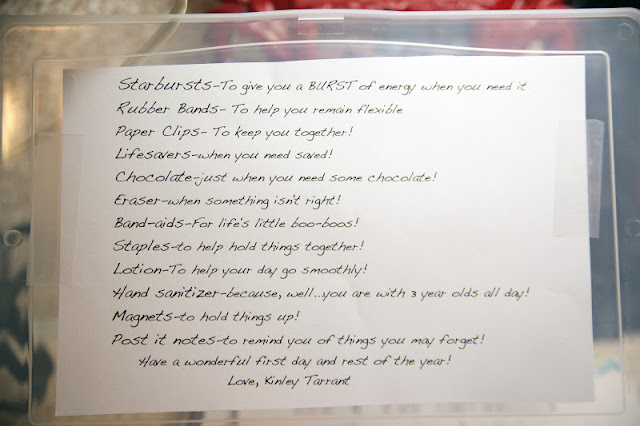 Starbursts-To give you a BURST of energy when you need it
Rubber Bands- To help you remain flexible
Paper Clips- To keep you together!
Lifesavers-when you need saved!
Chocolate-just when you need some chocolate!
Eraser-when something isn't right!
Band-aids-For life's little boo-boos!
Staples-to help hold things together!
Lotion-To help your day go smoothly!
Hand sanitizer-because, well...you are with 3 year olds all day!
Magnets-to hold things up!
Post it notes-to remind you of things you may forget!
Have a wonderful first day and rest of the year!
Love, Kinley Tarrant